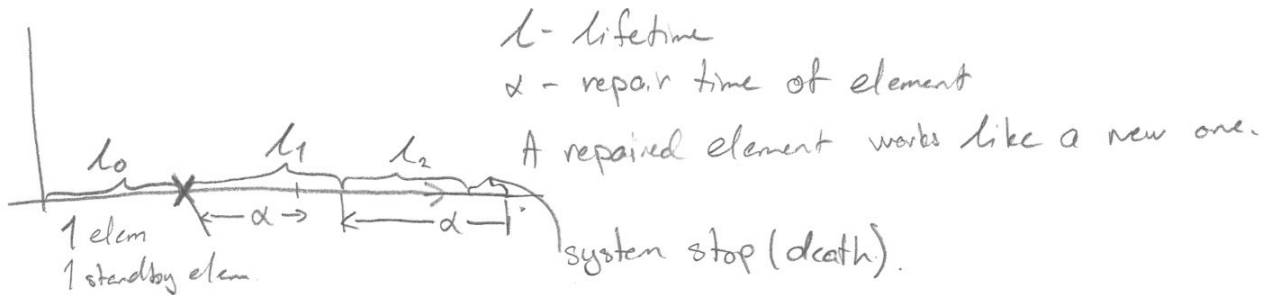 l - lifetime
α - repair time of element
A repaired element works like a new one.
l₀ l₁ l₂
α α
1 elem
1 standby elem
system stop (death).